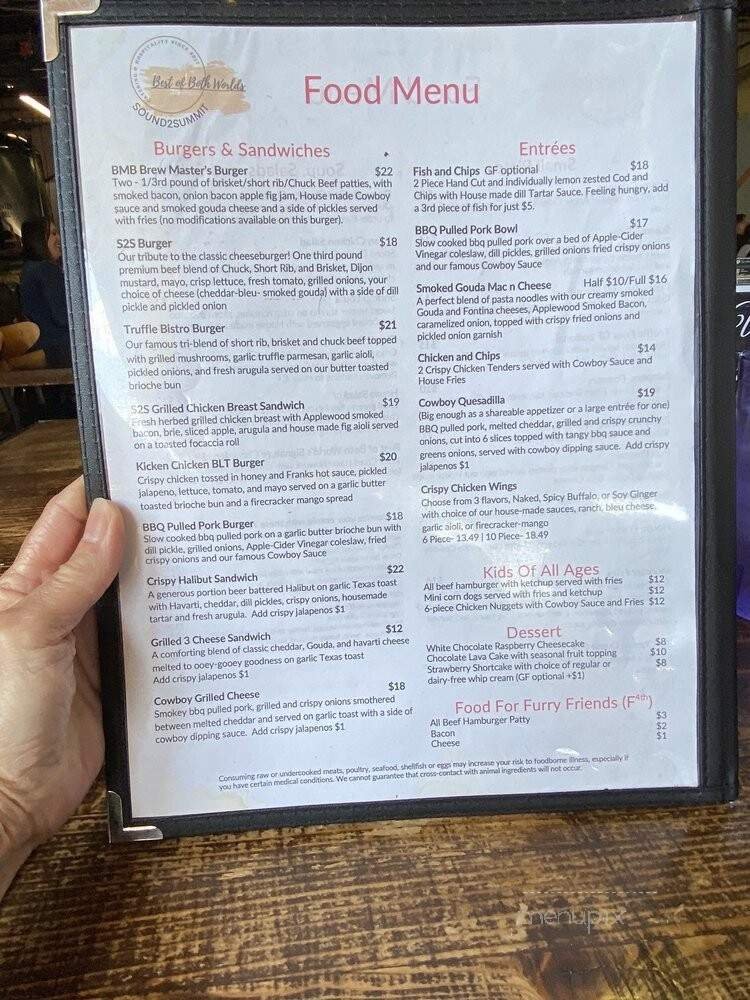 CATERING & HOSPITALITY SINCE
Best of Both Worlds
SOUND2SUMMIT
Food Menu
Burgers & Sandwiches
BMB Brew Master's Burger $22
Two - 1/3rd pound of brisket/short rib/Chuck Beef patties, with
smoked bacon, onion bacon apple fig jam, House made Cowboy
sauce and smoked gouda cheese and a side of pickles served
with fries (no modifications available on this burger).
S2S Burger $18
Our tribute to the classic cheeseburger! One third pound
premium beef blend of Chuck, Short Rib, and Brisket, Dijon
mustard, mayo, crisp lettuce, fresh tomato, grilled onions, your
choice of cheese (cheddar-bleu- smoked gouda) with a side of dill
pickle and pickled onion
Truffle Bistro Burger $21
Our famous tri-blend of short rib, brisket and chuck beef topped
with grilled mushrooms, garlic truffle parmesan, garlic aioli,
pickled onions, and fresh arugula served on our butter toasted
brioche bun
S2S Grilled Chicken Breast Sandwich $19
Fresh herbed grilled chicken breast with Applewood smoked
bacon, brie, sliced apple, arugula and house made fig aioli served
on a toasted focaccia roll
Kicken Chicken BLT Burger $20
Crispy chicken tossed in honey and Franks hot sauce, pickled
jalapeno, lettuce, tomato, and mayo served on a garlic butter
toasted brioche bun and a firecracker mango spread
BBQ Pulled Pork Burger $18
Slow cooked bbq pulled pork on a garlic butter brioche bun with
dill pickle, grilled onions, Apple-Cider Vinegar coleslaw, fried
crispy onions and our famous Cowboy Sauce
Crispy Halibut Sandwich $22
A generous portion beer battered Halibut on garlic Texas toast
with Havarti, cheddar, dill pickles, crispy onions, housemade
tartar and fresh arugula. Add crispy jalapenos $1
Grilled 3 Cheese Sandwich $12
A comforting blend of classic cheddar, Gouda, and havarti cheese
melted to ooey-gooey goodness on garlic Texas toast
Add crispy jalapenos $1
Cowboy Grilled Cheese $18
Smokey bbq pulled pork, grilled and crispy onions smothered
between melted cheddar and served on garlic toast with a side of
cowboy dipping sauce. Add crispy jalapenos $1
Entrées
Fish and Chips GF optional $18
2 Piece Hand Cut and individually lemon zested Cod and
Chips with House made dill Tartar Sauce. Feeling hungry, add
a 3rd piece of fish for just $5.
BBQ Pulled Pork Bowl $17
Slow cooked bbq pulled pork over a bed of Apple-Cider
Vinegar coleslaw, dill pickles, grilled onions fried crispy onions
and our famous Cowboy Sauce
Smoked Gouda Mac n Cheese Half $10/Full $16
A perfect blend of pasta noodles with our creamy smoked
Gouda and Fontina cheeses, Applewood Smoked Bacon,
caramelized onion, topped with crispy fried onions and
pickled onion garnish
Chicken and Chips $14
2 Crispy Chicken Tenders served with Cowboy Sauce and
House Fries
Cowboy Quesadilla $19
(Big enough as a shareable appetizer or a large entrée for one)
BBQ pulled pork, melted cheddar, grilled and crispy crunchy
onions, cut into 6 slices topped with tangy bbq sauce and
greens onions, served with cowboy dipping sauce. Add crispy
jalapenos $1
Crispy Chicken Wings
Choose from 3 flavors, Naked, Spicy Buffalo, or Soy Ginger
with choice of our house-made sauces, ranch, bleu cheese,
garlic aioli, or firecracker-mango
6 Piece- 13.49 | 10 Piece- 18.49
Kids Of All Ages
All beef hamburger with ketchup served with fries $12
Mini corn dogs served with fries and ketchup $12
6-piece Chicken Nuggets with Cowboy Sauce and Fries $12
Dessert
White Chocolate Raspberry Cheesecake $8
Chocolate Lava Cake with seasonal fruit topping $10
Strawberry Shortcake with choice of regular or $8
dairy-free whip cream (GF optional +$1)
Food For Furry Friends (F4th)
All Beef Hamburger Patty $3
Bacon $2
Cheese $1
Consuming raw or undercooked meats, poultry, seafood, shellfish or eggs may increase your risk to foodborne illness, especially if
you have certain medical conditions. We cannot guarantee that cross-contact with animal ingredients will not occur.
menupix